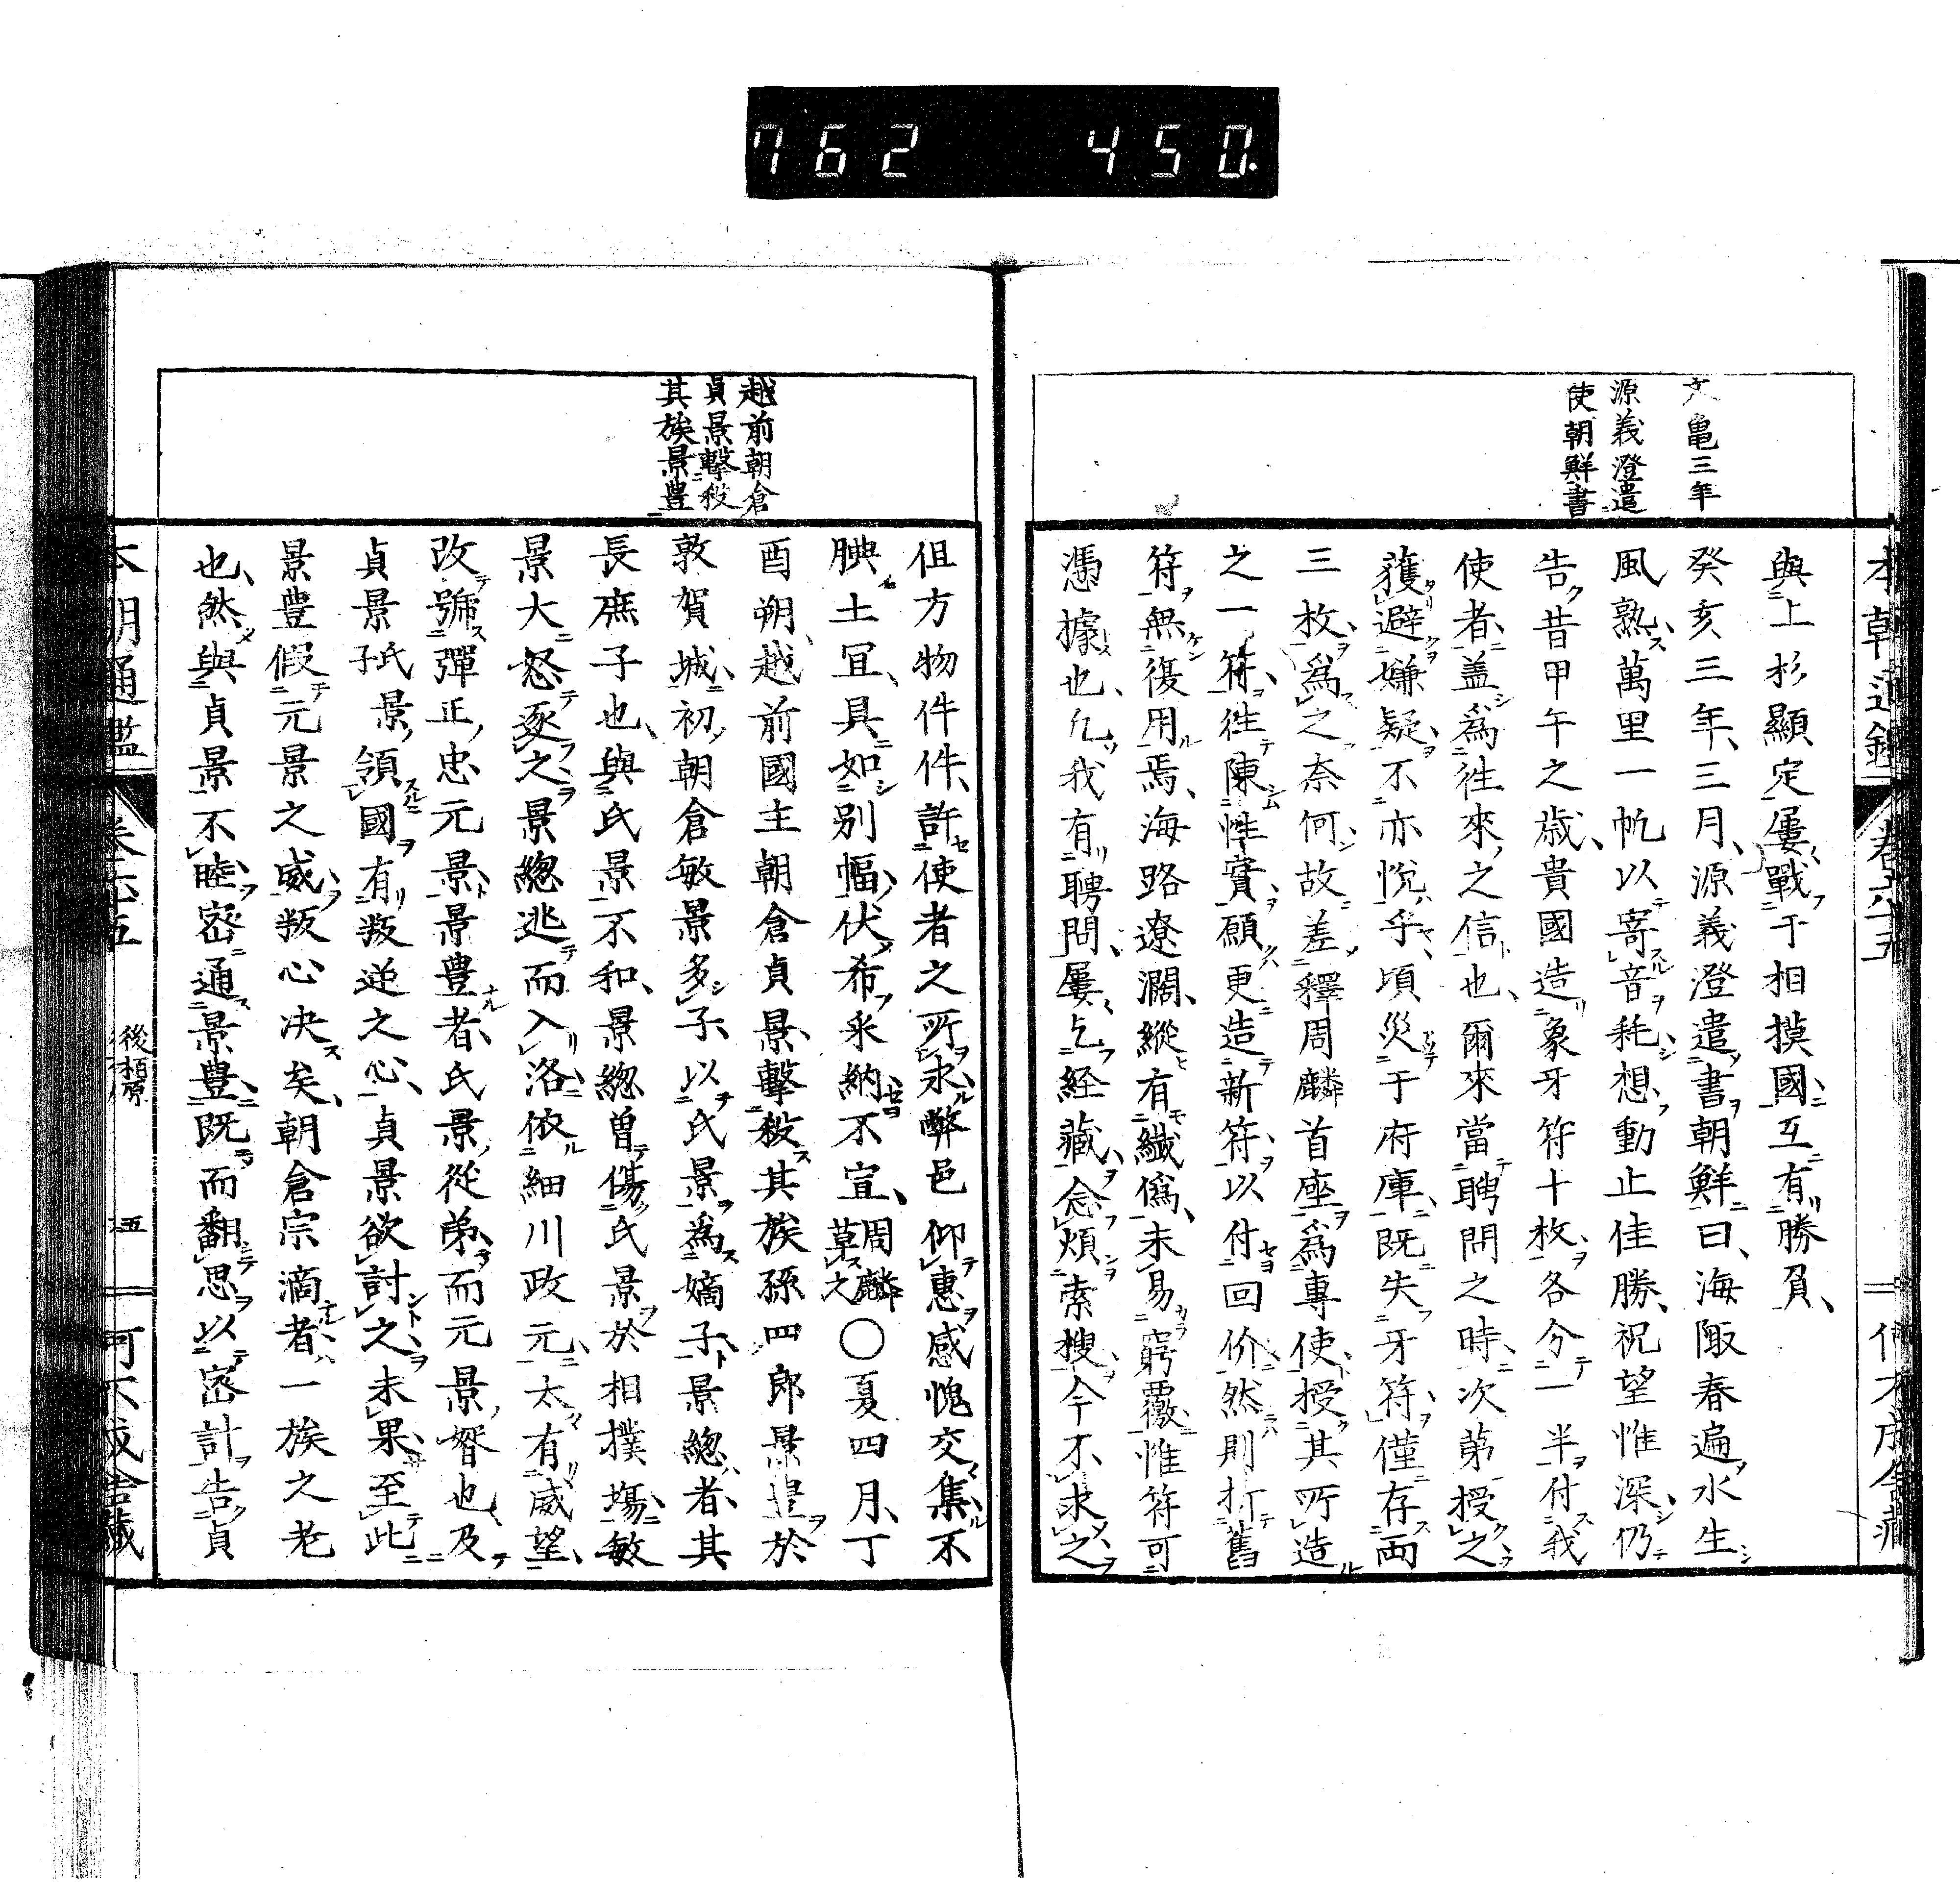 762 450.
文亀三年
源義澄遣
使朝鮮書
與上杉顯定屢戰于相摸國互有勝負
癸亥三年三月源義澄遣書朝鮮曰海陬春遍水生
風熟萬里一帆以寄音耗想動止佳勝祝望惟深仍
告昔甲午之歲貴國造象牙符十枚各分一半付我
使者盖爲徃來之信也爾來當聘問之時次第授之
獲避嫌疑不亦悅乎頃災于府庫既失牙符僅存兩
三枚爲之奈何故差釋周麟首座爲專使授其所造
之一符徃陳情實願更造新符以付回价然則打舊
符無復用焉海路遼濶縱有纎僞未易窮覈惟符可
憑據也凢我有聘問屢乞経藏忩煩索搜今不求之
越前朝倉
貞景擊殺
其族景豊
但方物件件許使者之所求弊邑仰惠感愧交集不
腆土冝具如别幅伏希采納不宣周麟草之〇夏四月丁
酉朔越前國主朝倉貞景擊殺其族孫四郎景豊於
敦賀城初朝倉敏景多子以氏景爲嫡子景總者其
長庶子也與氏景不和景總曽傷氏景於相撲塲敏
景大怒逐之景總逃而入洛依細川政元太有威望
改號彈正忠元景景豊者氏景從弟而元景壻也及
貞景氏景子領國有叛逆之心貞景欲討之未果至此
景豊假元景之威叛心决矣朝倉宗滴者一族之老
也然與貞景不睦宻通景豊既而翻思以宻計告貞
本朝通鑑
卷六十五
後栢原
五